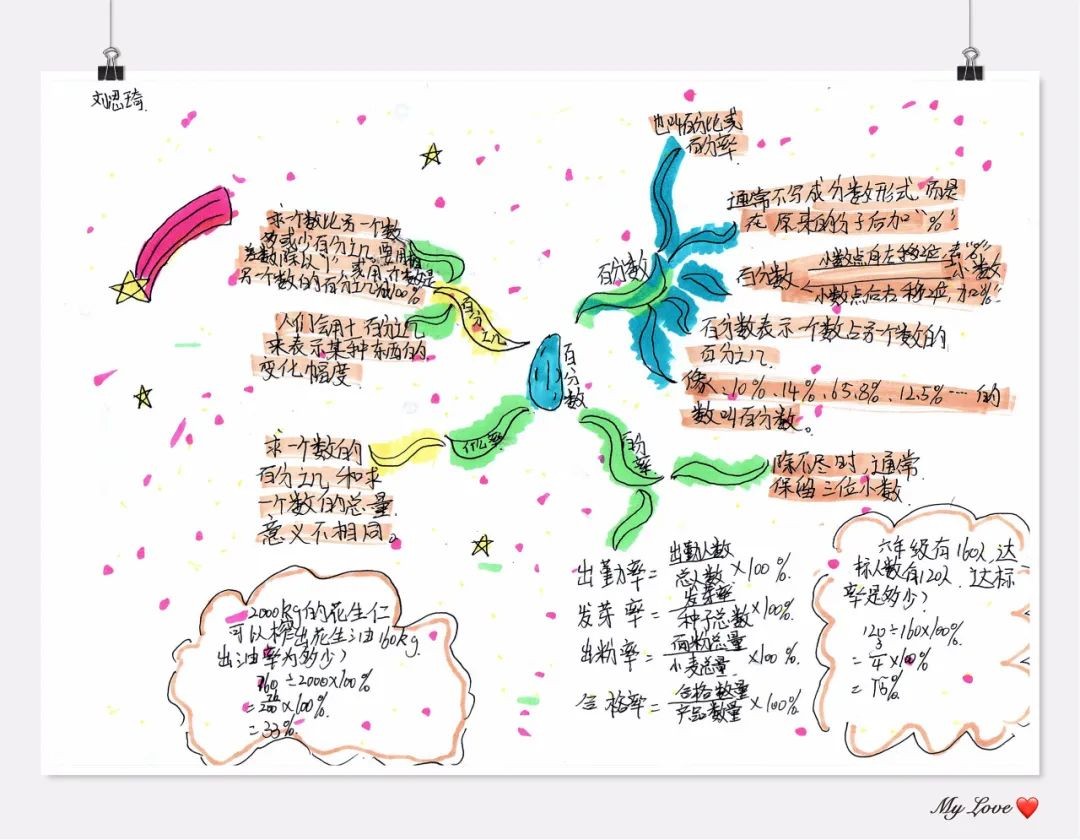 刘思琦
也叫百分比或
百分率
通常不写成分数形式,而是
在原来的分子后加"%"
百分数
百分数
小数点向左移2位,去"%"
小数
小数点向右移2位,加"%"
百分数表示一个数占另一个数的
百分之几
像:10%、14%、65.8%、12.5%……的
数叫百分数。
求一个数比另一个数
多或少百分之几,要用
差数除以"1"
或用一个数是
另一个数的百分之几减100%
百分之几
人们会用上百分之几
来表示某种东西的
变化幅度
百分数
什么率
求一个数的
百分之几和求
一个数的总量
意义不相同。
百分率
除不尽时,通常
保留三位小数
出勤率=出勤人数/总人数×100%
发芽率=发芽率/种子总数×100%
出粉率=面粉总量/小麦总量×100%
合格率=合格数量/产品数量×100%
2000kg的花生仁
可以榨出花生油160kg
出油率为多少?
760÷2000×100%
×100%
=33%
六年级有160人,达
标人数有120人,达标
率是多少?
120÷160×100%
=3/4×100%
=75%
My Love